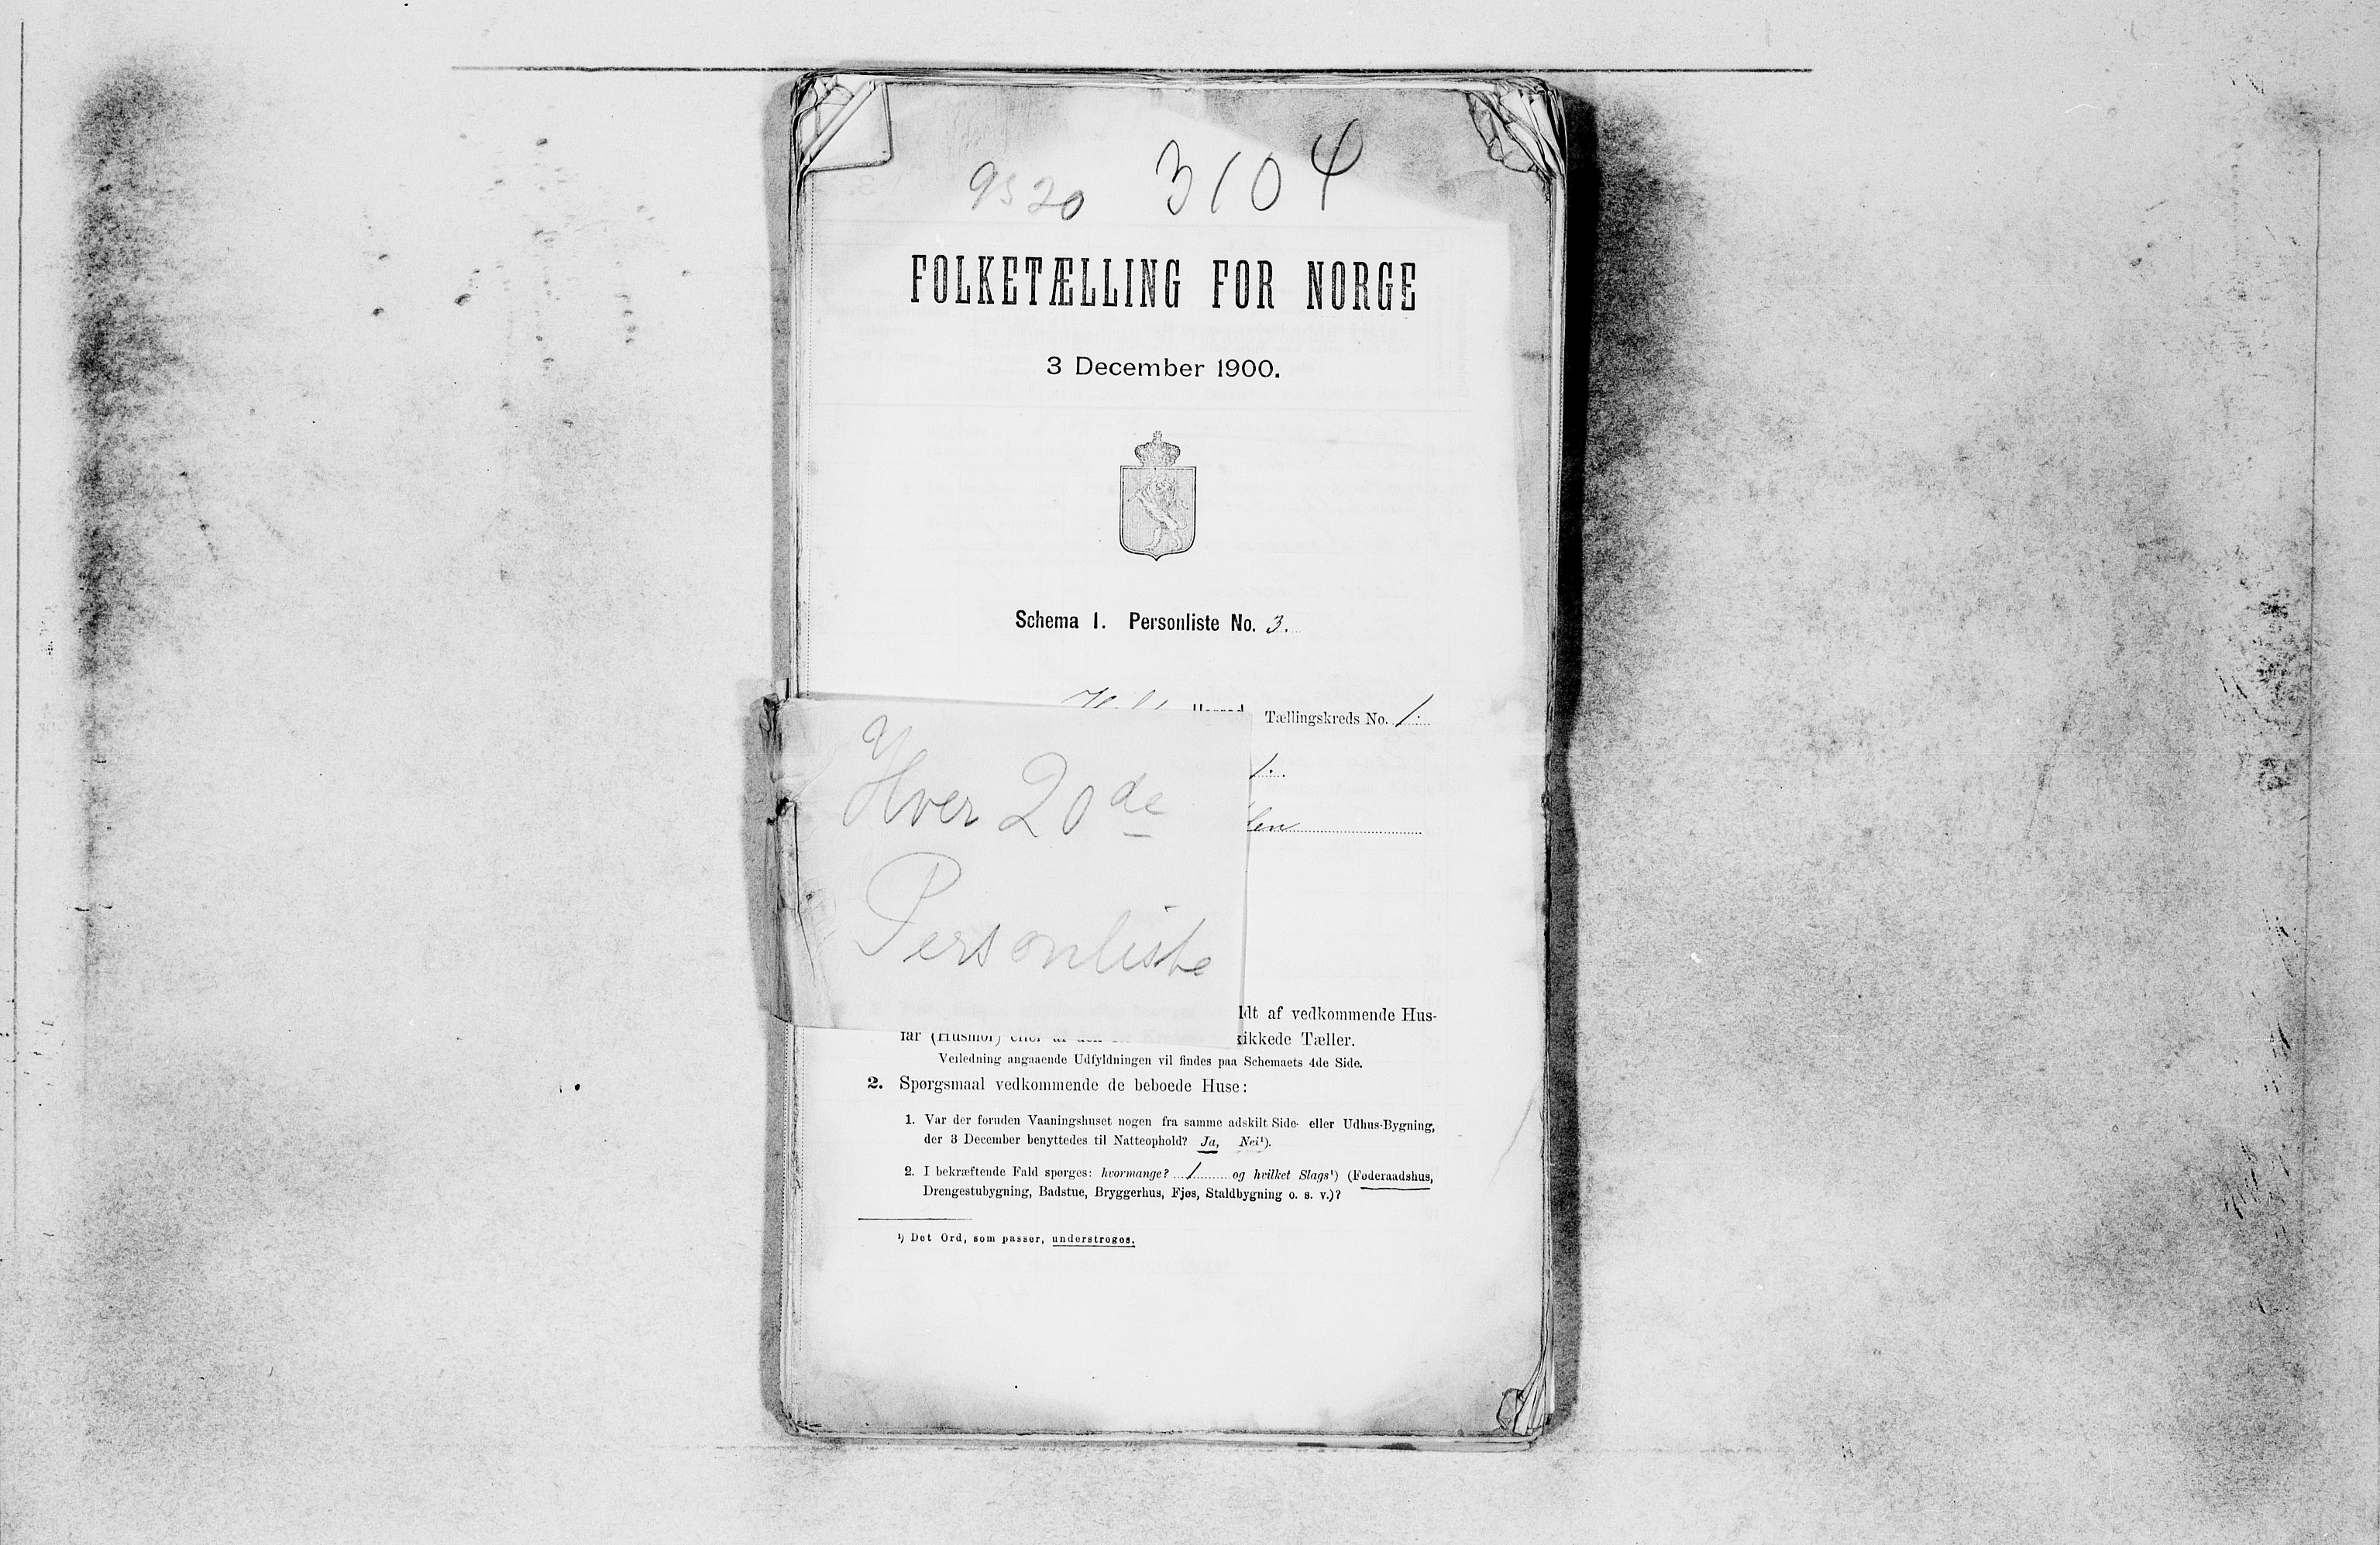 9520 3104
FOLKETÆLLING FOR NORGE
3 December 1900.
Schema I. Personliste No. 3.
Herred Tællingskreds No. 1.
1.
Hver 20de
Personliste
ldt af vedkommende Hus-
far (Husmor) eller af den kikkede Tæller.
Veiledning angaaende Udfyldningen vil findes paa Schemaets 4de Side.
2. Spørgsmaal vedkommende de beboede Huse:
1. Var der foruden Vaaningshuset nogen fra samme adskilt Side- eller Udhus-Bygning,
der 3 December benyttedes til Natteophold? Ja, Nei¹).
2. I bekræftende Fald spørges: hvormange? 1 og hvilket Slags¹) (Føderaadshus,
Drengestubygning, Badstue, Bryggerhus, Fjøs, Staldbygning o. s. v.)?
¹) Det Ord, som passer, understreges.